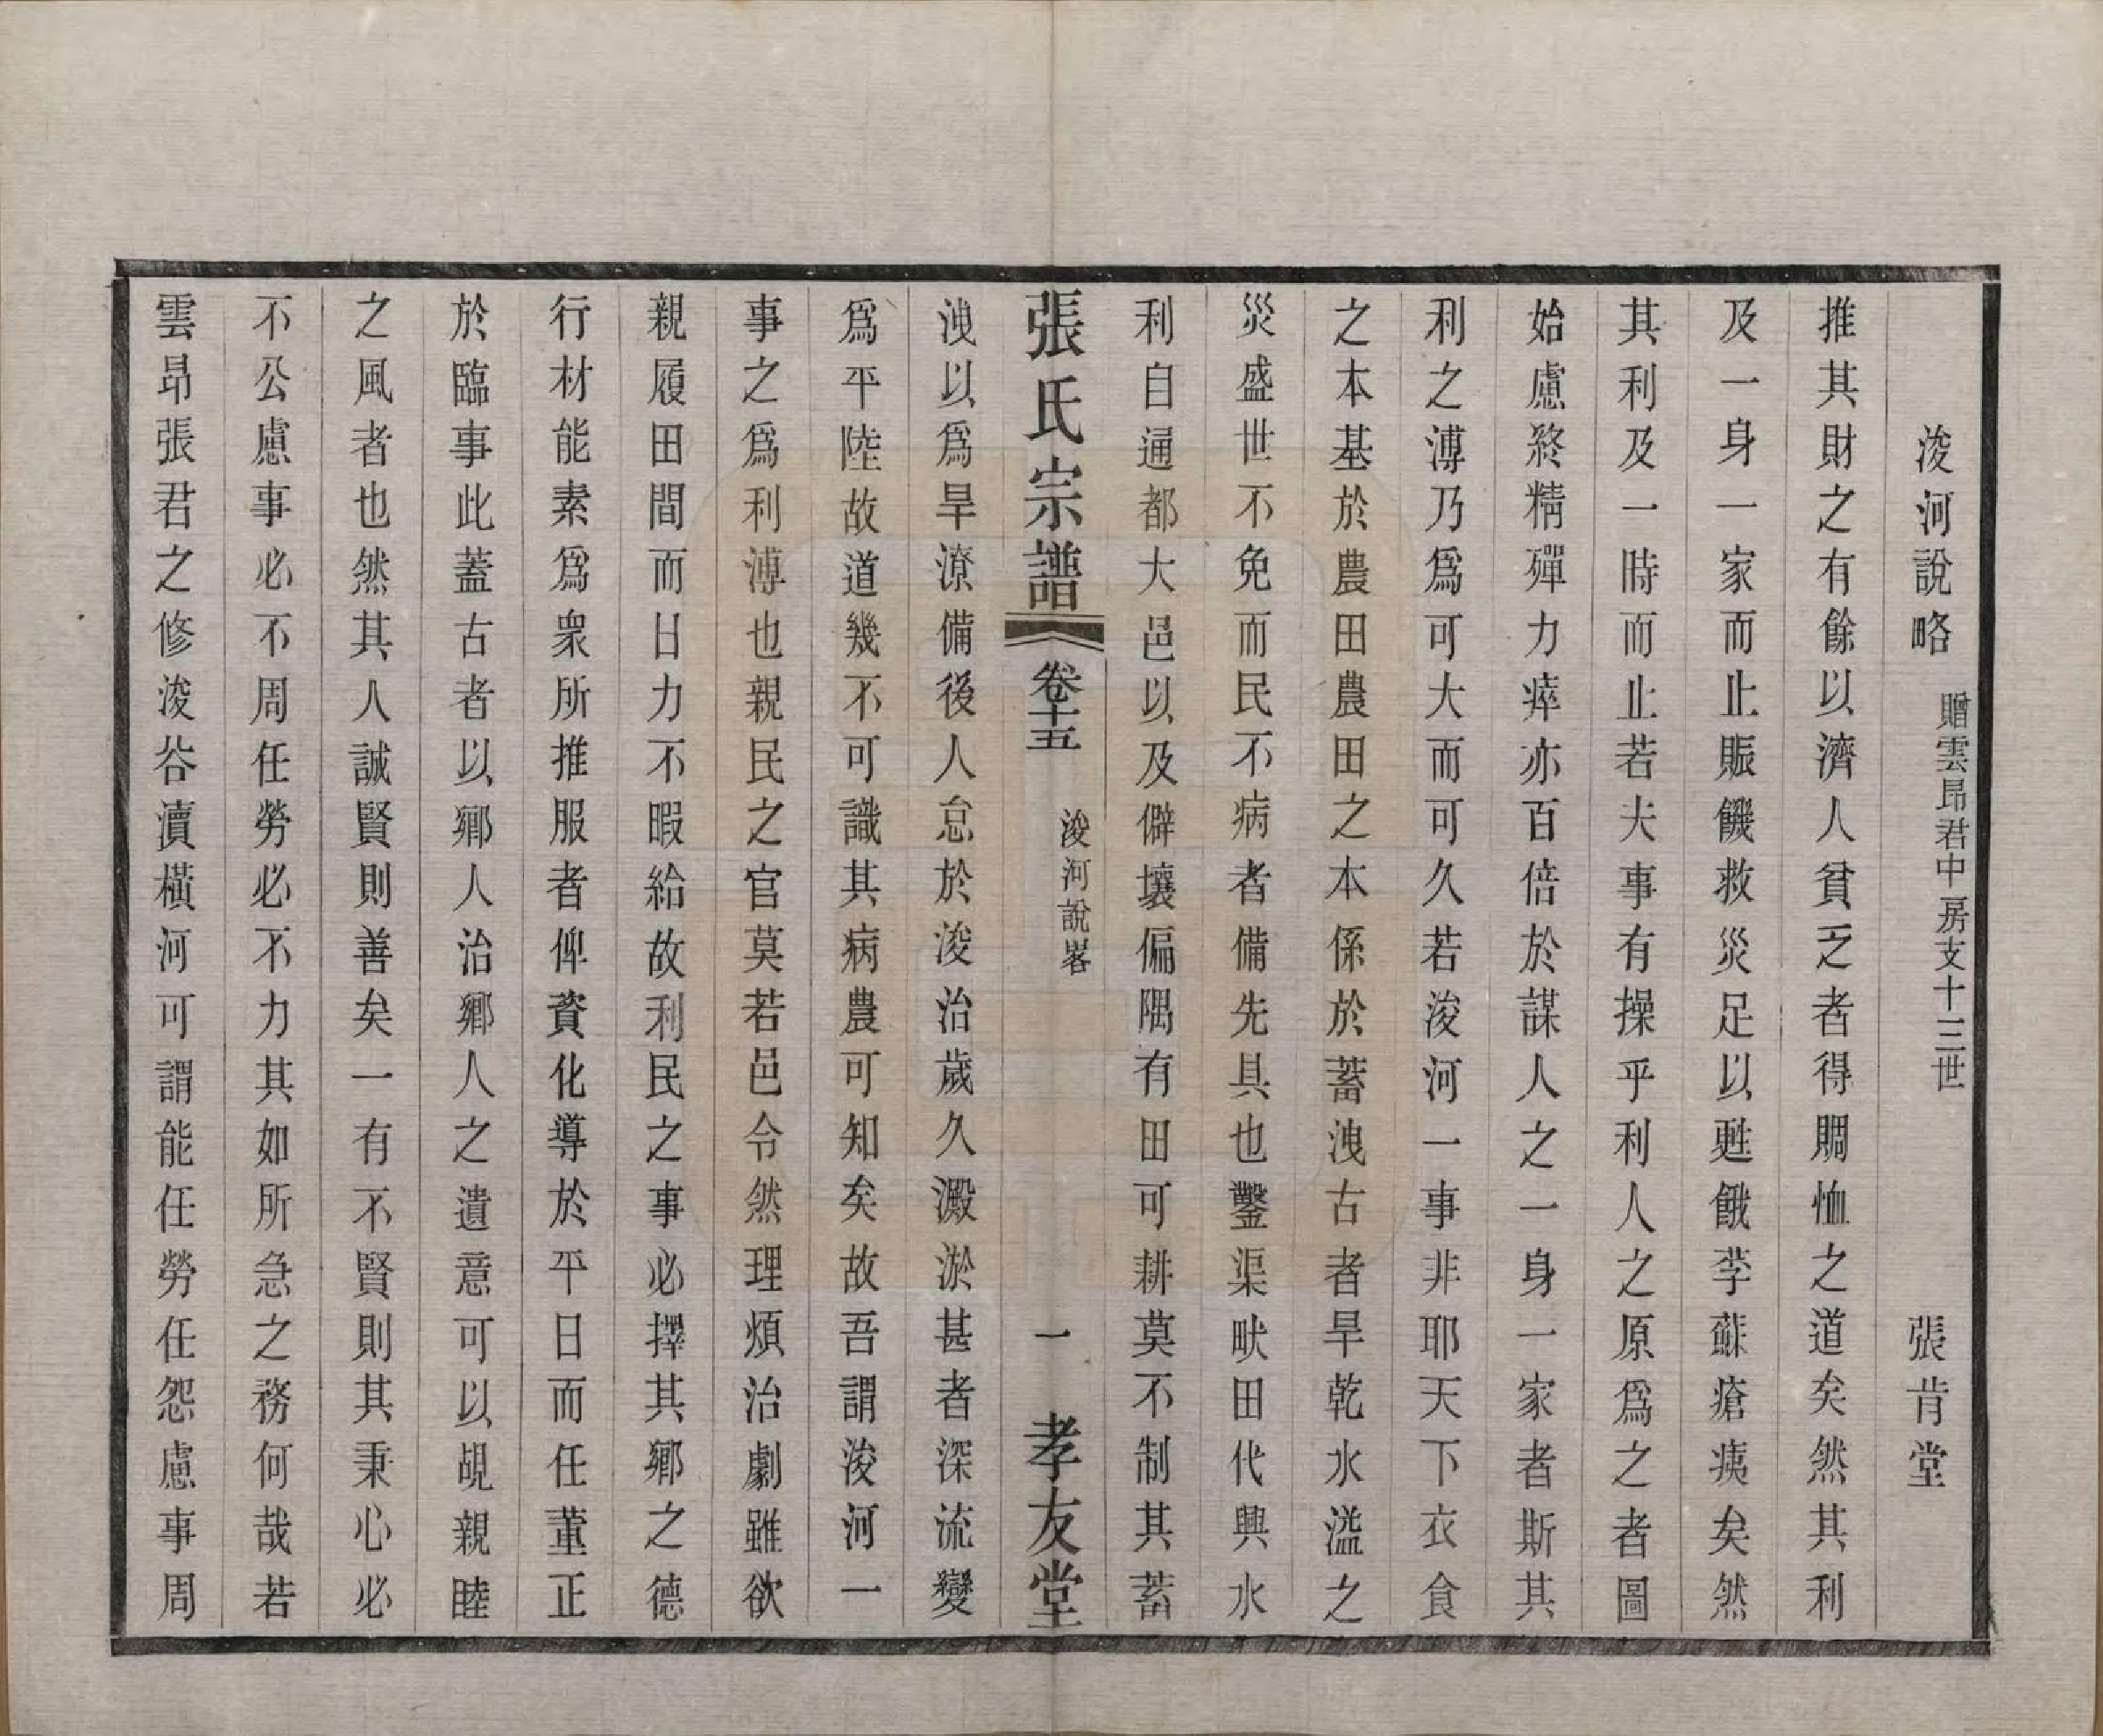 浚河說略　贈雲昂君中房支十三世　張肯堂
推其財之有餘以濟人貧乏者得賙恤之道矣然其利
及一身一家而止賑饑救災足以甦餓莩蘇瘡痍矣然
其利及一時而止若夫事有操乎利人之原爲之者圖
始慮終精殫力瘁亦百倍於謀人之一身一家者斯其
利之溥乃爲可大而可久若浚河一事非耶天下衣食
之本基於農田農田之本係於蓄洩古者旱乾水溢之
災盛世不免而民不病者備先具也鑿渠畎田代興水
利自通都大邑以及僻壤偏隅有田可耕莫不制其蓄
張氏宗譜　卷十五　浚河說畧　一　孝友堂
洩以爲旱潦備後人怠於浚治歲久澱淤甚者深流變
爲平陸故道幾不可識其病農可知矣故吾謂浚河一
事之爲利溥也親民之官莫若邑令然理煩治劇雖欲
親履田間而日力不暇給故利民之事必擇其鄉之德
行材能素爲衆所推服者俾資化導於平日而任董正
於臨事此蓋古者以鄉人治鄉人之遺意可以覘親睦
之風者也然其人誠賢則善矣一有不賢則其秉心必
不公慮事必不周任勞必不力其如所急之務何哉若
雲昂張君之修浚谷瀆橫河可謂能任勞任怨慮事周